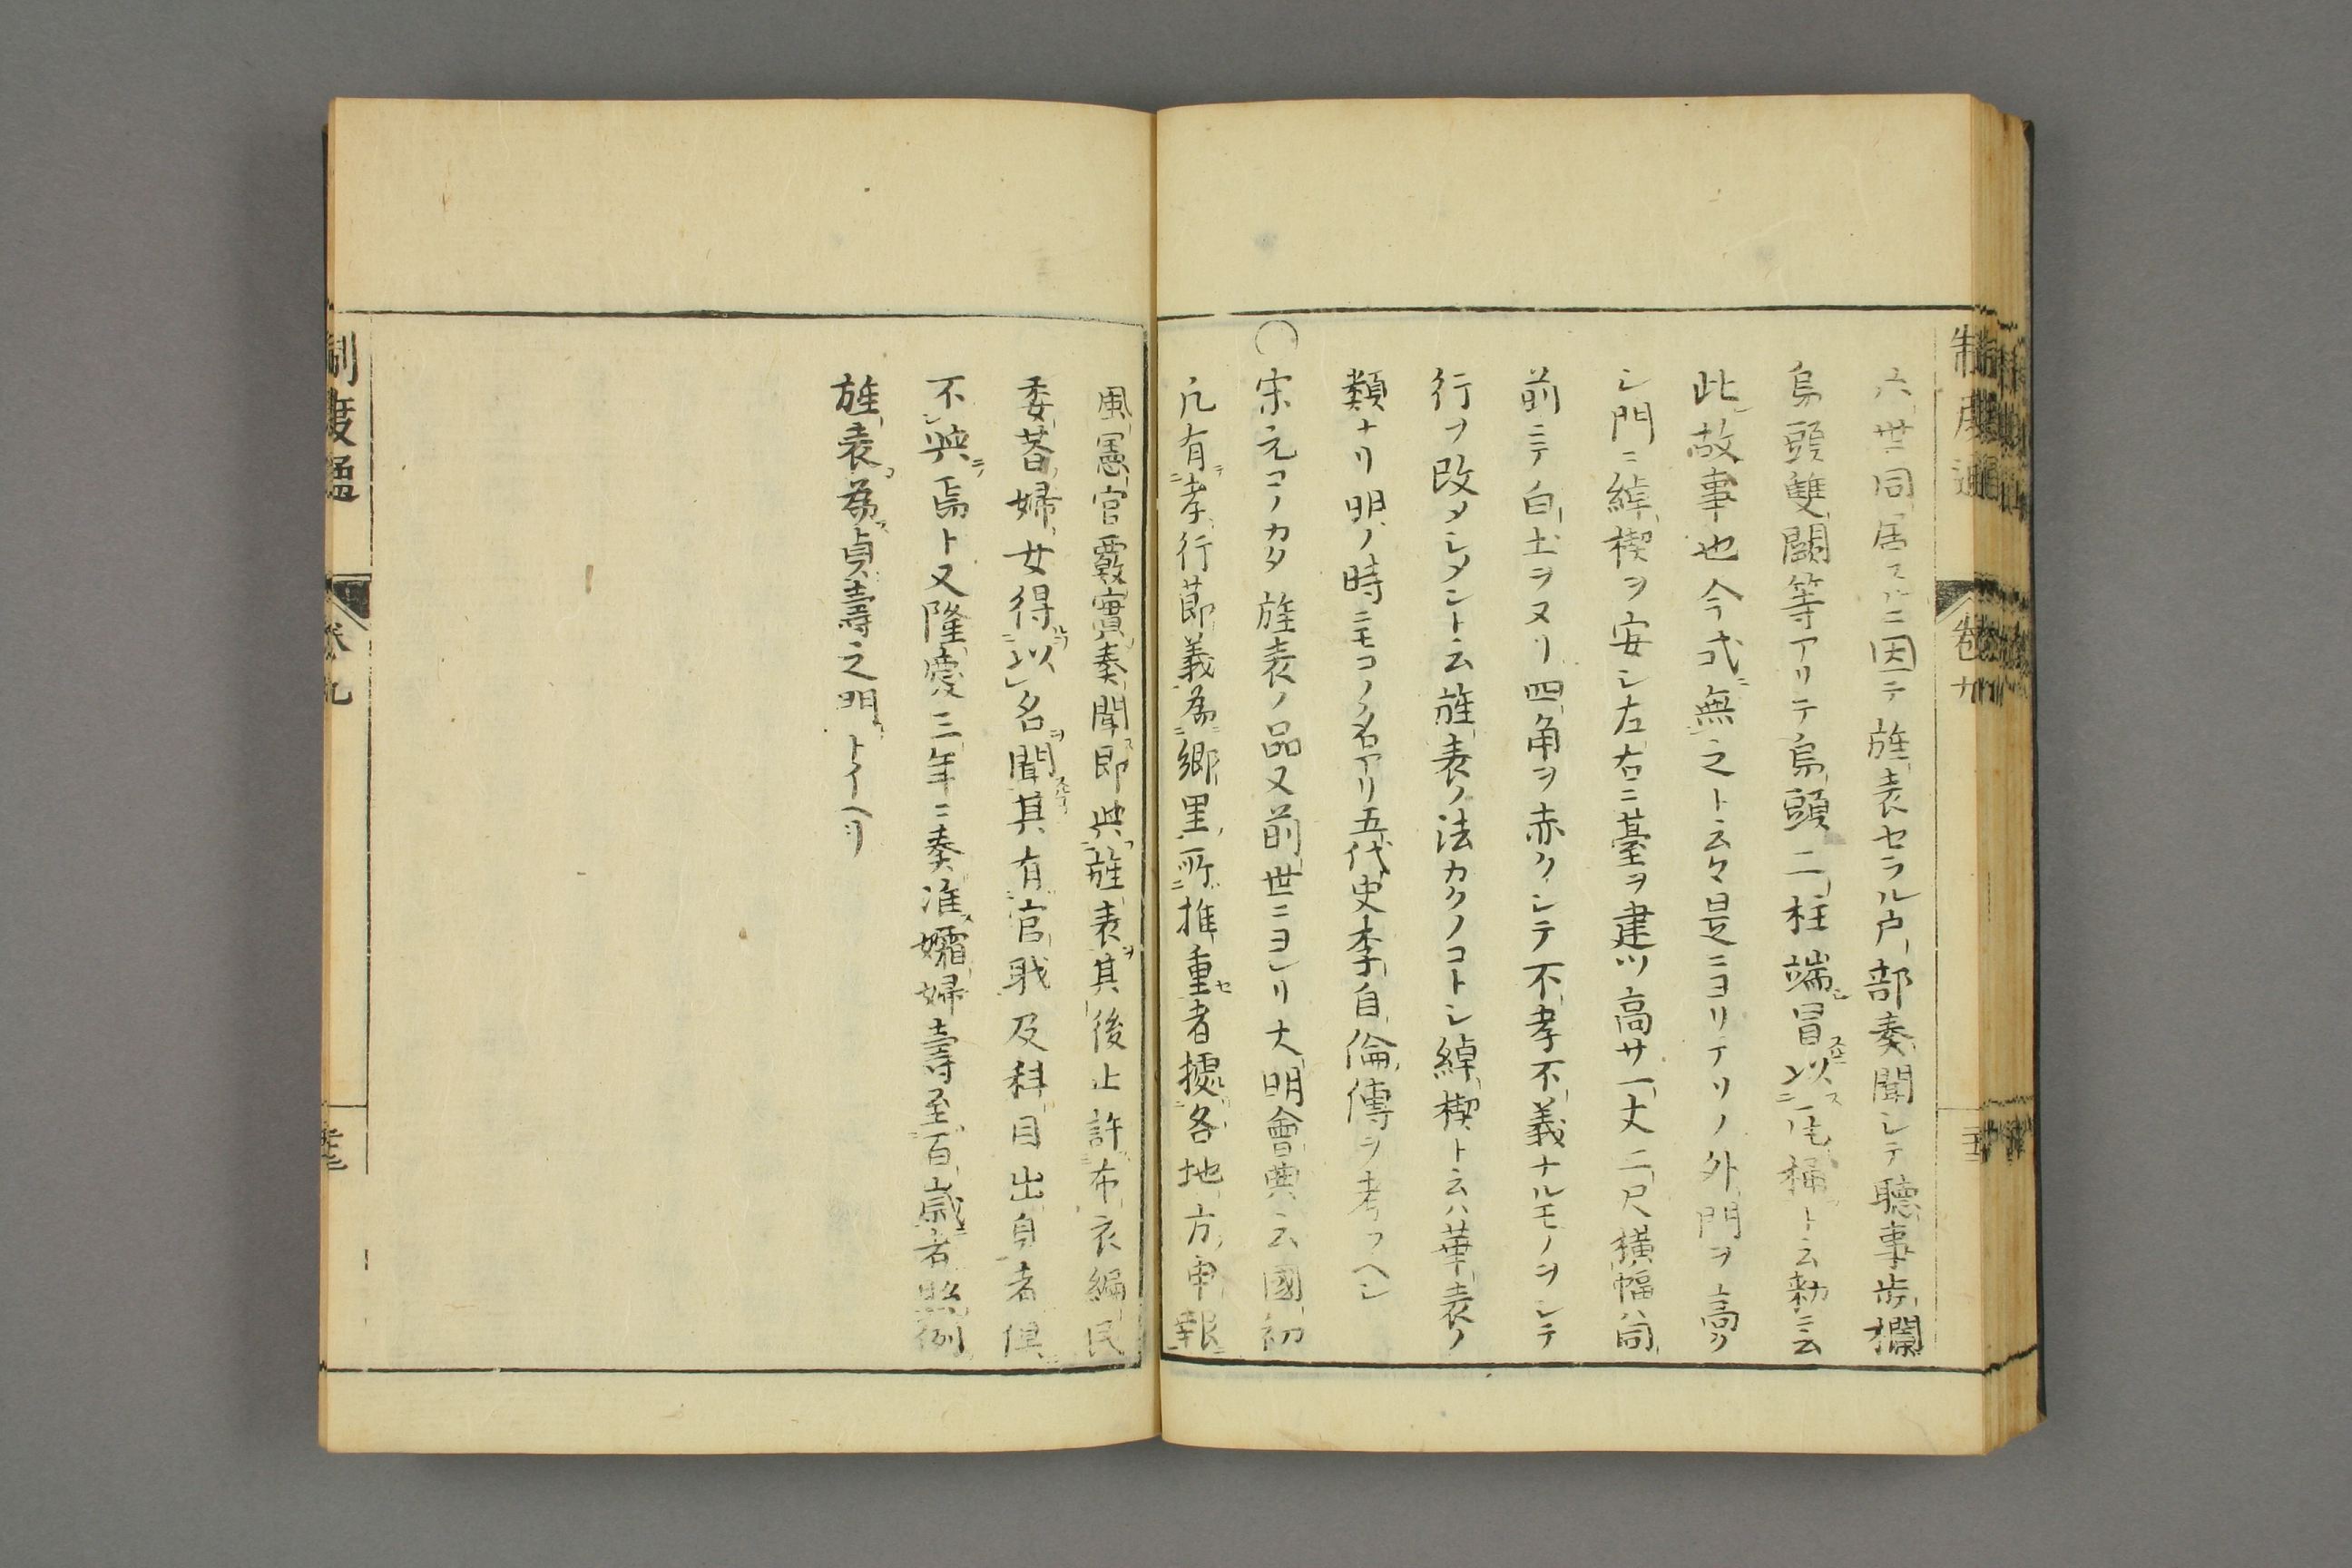 制度通 卷九
六世同居スルニ因テ旌表セラル戸部奏聞シテ聽事步欄
烏頭雙闕等アリテ烏頭二柱端冒以瓦桶ト云勅ニ云
此故事也今式無之ト云々是ニヨリテソノ外門ヲ高ク
シ門ニ綽楔ヲ安シ左右ニ臺ヲ建ツ高サ一丈二尺橫幅ハ同
前ニテ白土ヲヌリ四角ヲ赤クシテ不孝不義ナルモノヲシテ
行ヲ改タシメント云旌表ノ法カクノコトシ綽楔ト云ハ華表ノ
類ナリ明ノ時ニモコノ名アリ五代史李自倫傳ヲ考フヘシ
〇宋元コノカタ旌表ノ品又前世ニヨレリ大明會典云國初
凡有孝行節義為鄉里所推重者據各地方申報
風憲官覈實奏聞即與旌表其後止許布衣編民
委巷婦女得以名聞其有官職及科目出身者俱
不與焉ト又隆慶三年ニ奏准孀婦壽至百歲者照例
旌表為貞壽之門トイヘリ
制度通 卷九